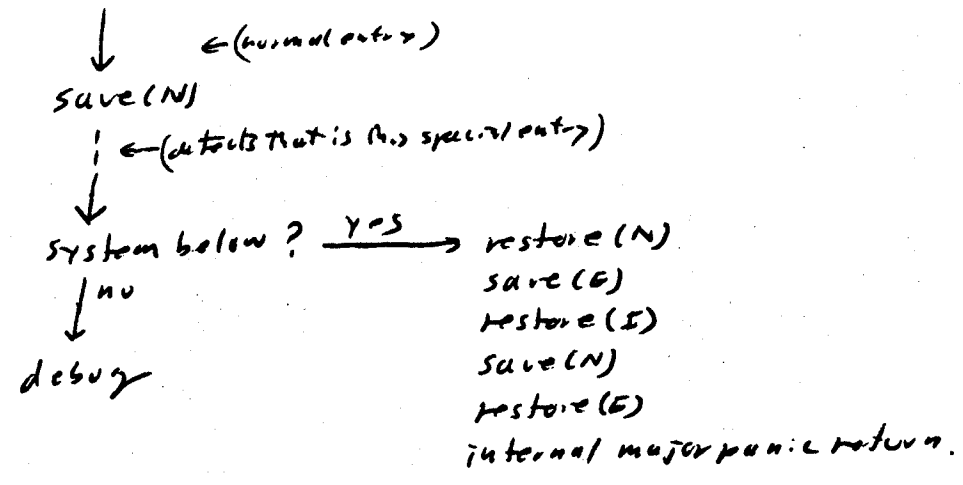 ←(normal entry)
save(N)
←(detects that is this special entry)
system below? yes → restore(N)
no save(E)
restore(I)
debug save(N)
restore(E)
internal major panic return.